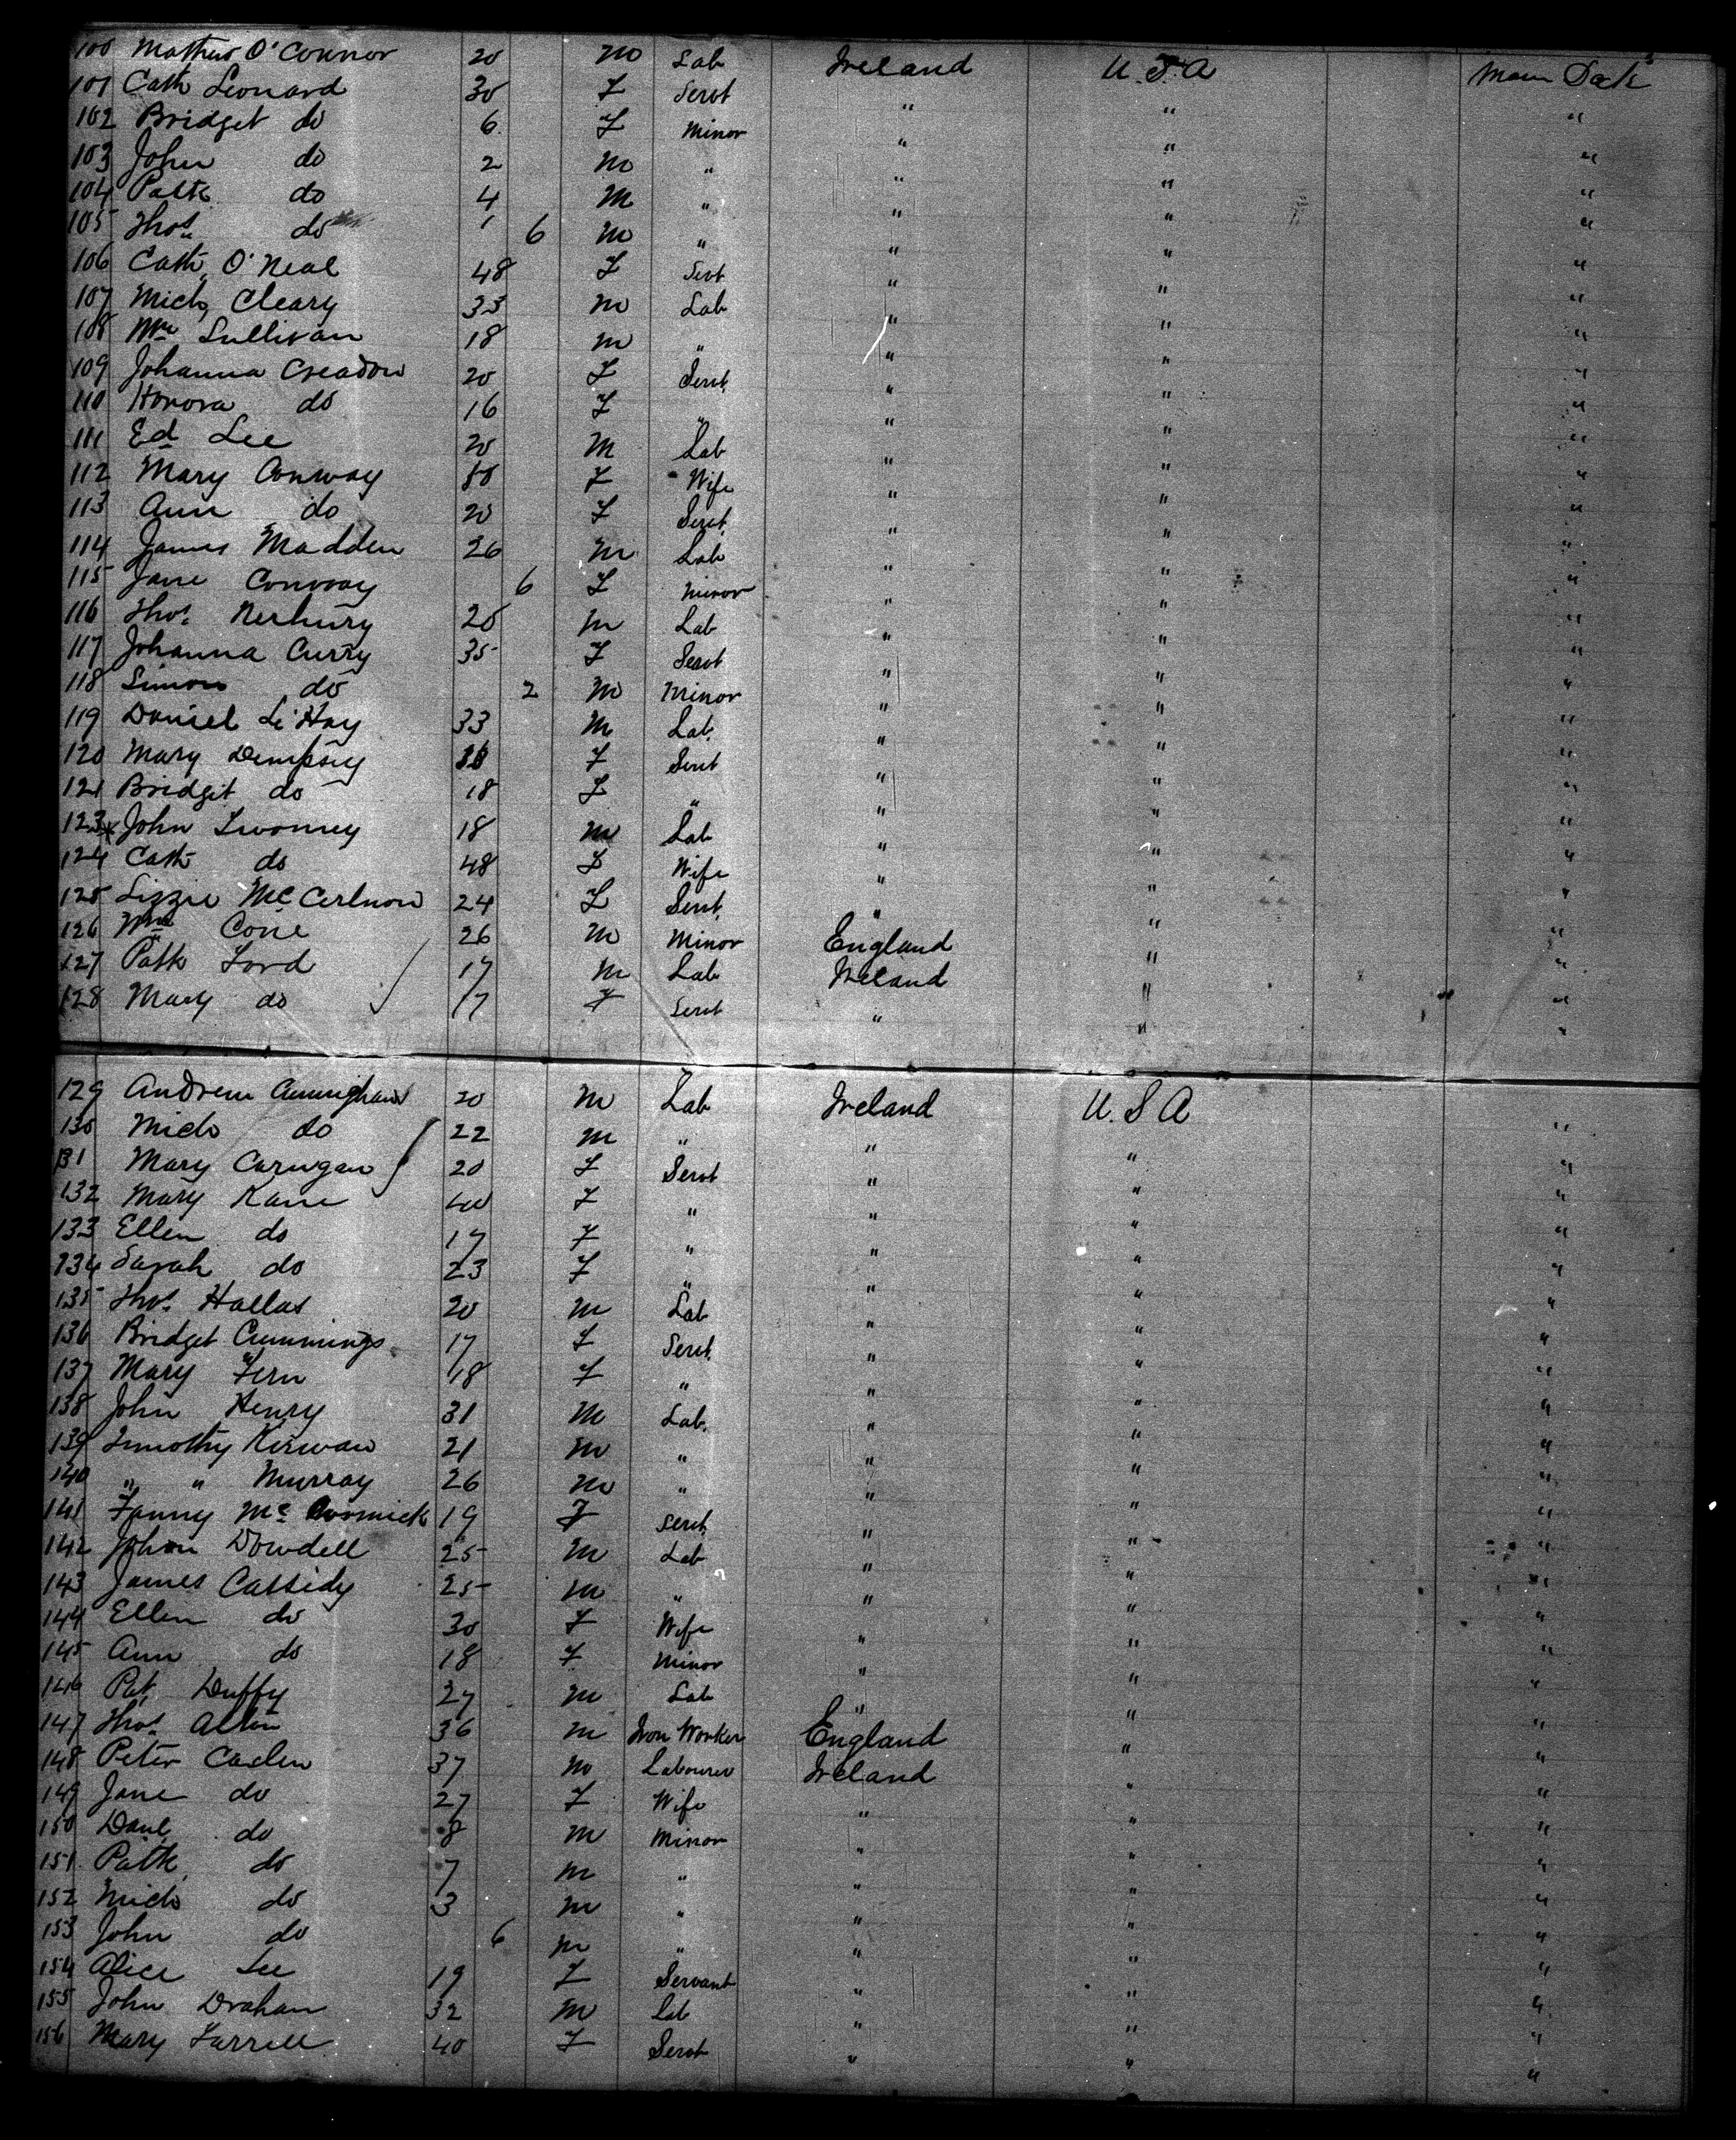 100 Mathew O'Connor 20 M Lab Ireland U.S.A Main Deck
101 Cath Leonard 30 F Servt " " "
102 Bridget do 6 F Minor " " "
103 John do 2 M " " " "
104 Patk do 4 M " " " "
105 Thos do 1 6 M " " " "
106 Cath O'Neal 48 F Servt " " "
107 Mich Cleary 33 M Lab " " "
108 Wm Sullivan 18 M " " " "
109 Johanna Creadon 20 F Servt " " "
110 Honora do 16 F " " " "
111 Ed Lee 20 M Lab " " "
112 Mary Conway F Wife " " "
113 Ann do 20 F Servt " " "
114 James Madden 26 M Lab " " "
115 Jane Conway 6 F Minor " " "
116 Thos Nerhury 20 M Lab " " "
117 Johanna Curry 35 F Servt " " "
118 Simon do 2 M Minor " " "
119 Daniel Le'Hay 33 M Lab " " "
120 Mary Dempsey F Servt " " "
121 Bridget do 18 F " " " "
123 John Twomey 18 M Lab " " "
124 Cath do 48 F Wife " " "
125 Lizzie McCerlnon 24 F Servt " " "
126 Wm Cone 26 M Minor England " "
127 Patk Ford 17 M Lab Ireland " "
128 Mary do 17 F Servt " " "
129 Andrew Cunningham 20 M Lab Ireland U.S A "
130 Mich do 22 M " " " "
131 Mary Carugan 20 F Servt " " "
132 Mary Kane 40 F " " " "
133 Ellen do 17 F " " " "
134 Sarah do 23 F " " " "
135 Thos Hallas 20 M Lab " " "
136 Bridget Cummings 17 F Servt " " "
137 Mary Fern 18 F " " " "
138 John Henry 31 M Lab " " "
139 Timothy Kirwan 21 M " " " "
140 " " Murray 26 M " " " "
141 Fanny McCormick 19 F Servt " " "
142 John Dowdell 25 M Lab " " "
143 James Cassidy 25 M " " " "
144 Ellen do 30 F Wife " " "
145 Ann do 18 F Minor " " "
146 Pat Duffy 27 M Lab " " "
147 Thos Allen 36 M Iron Worker England " "
148 Peter Caslen 37 M Labourer Ireland " "
149 Jane do 27 F Wife " " "
150 Danl do 8 M Minor " " "
151 Patk do 7 M " " " "
152 Mich do 3 M " " " "
153 John do 6 M " " " "
154 Alice Lee 19 F Servant " " "
155 John Drahan 32 M Lab " " "
156 Mary Farrell 40 F Servt " " "